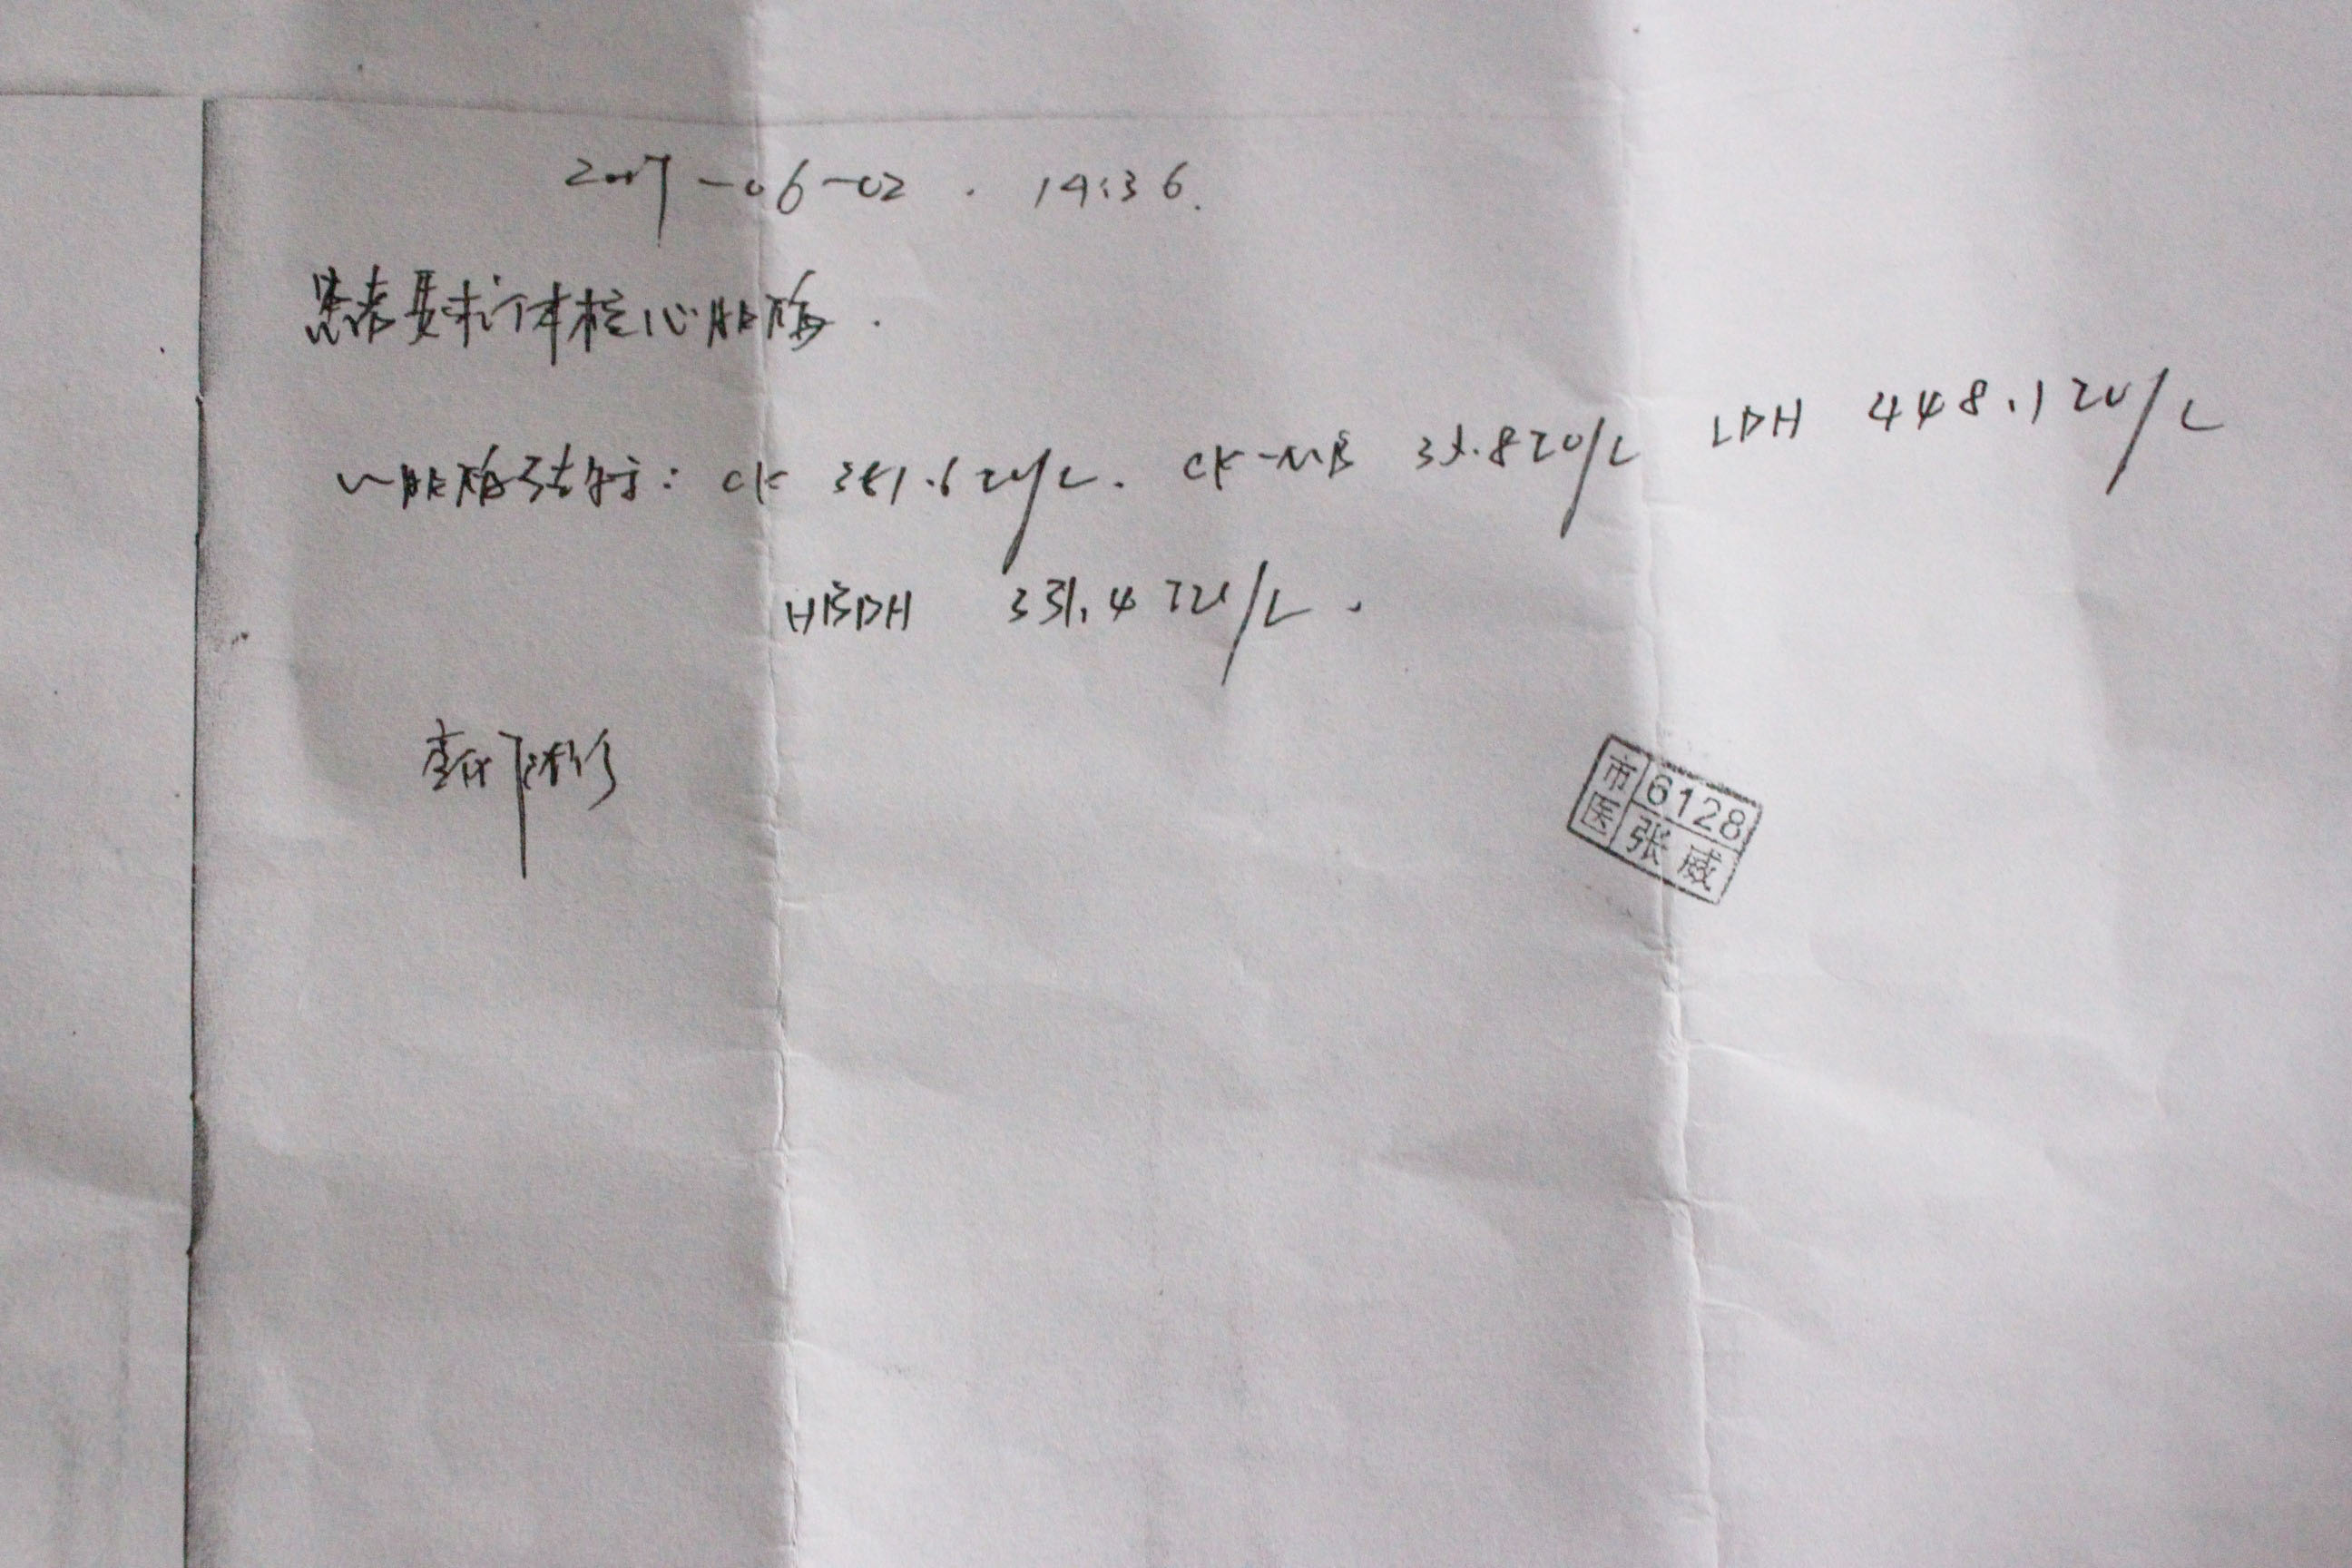 2007-06-02 . 14:36.
患者要求体检心肌酶.
心肌酶示: CK 361.6IU/L. CK-MB 35.8IU/L LDH 448.1IU/L
HBDH 331.4IU/L.
市医 6128 张威